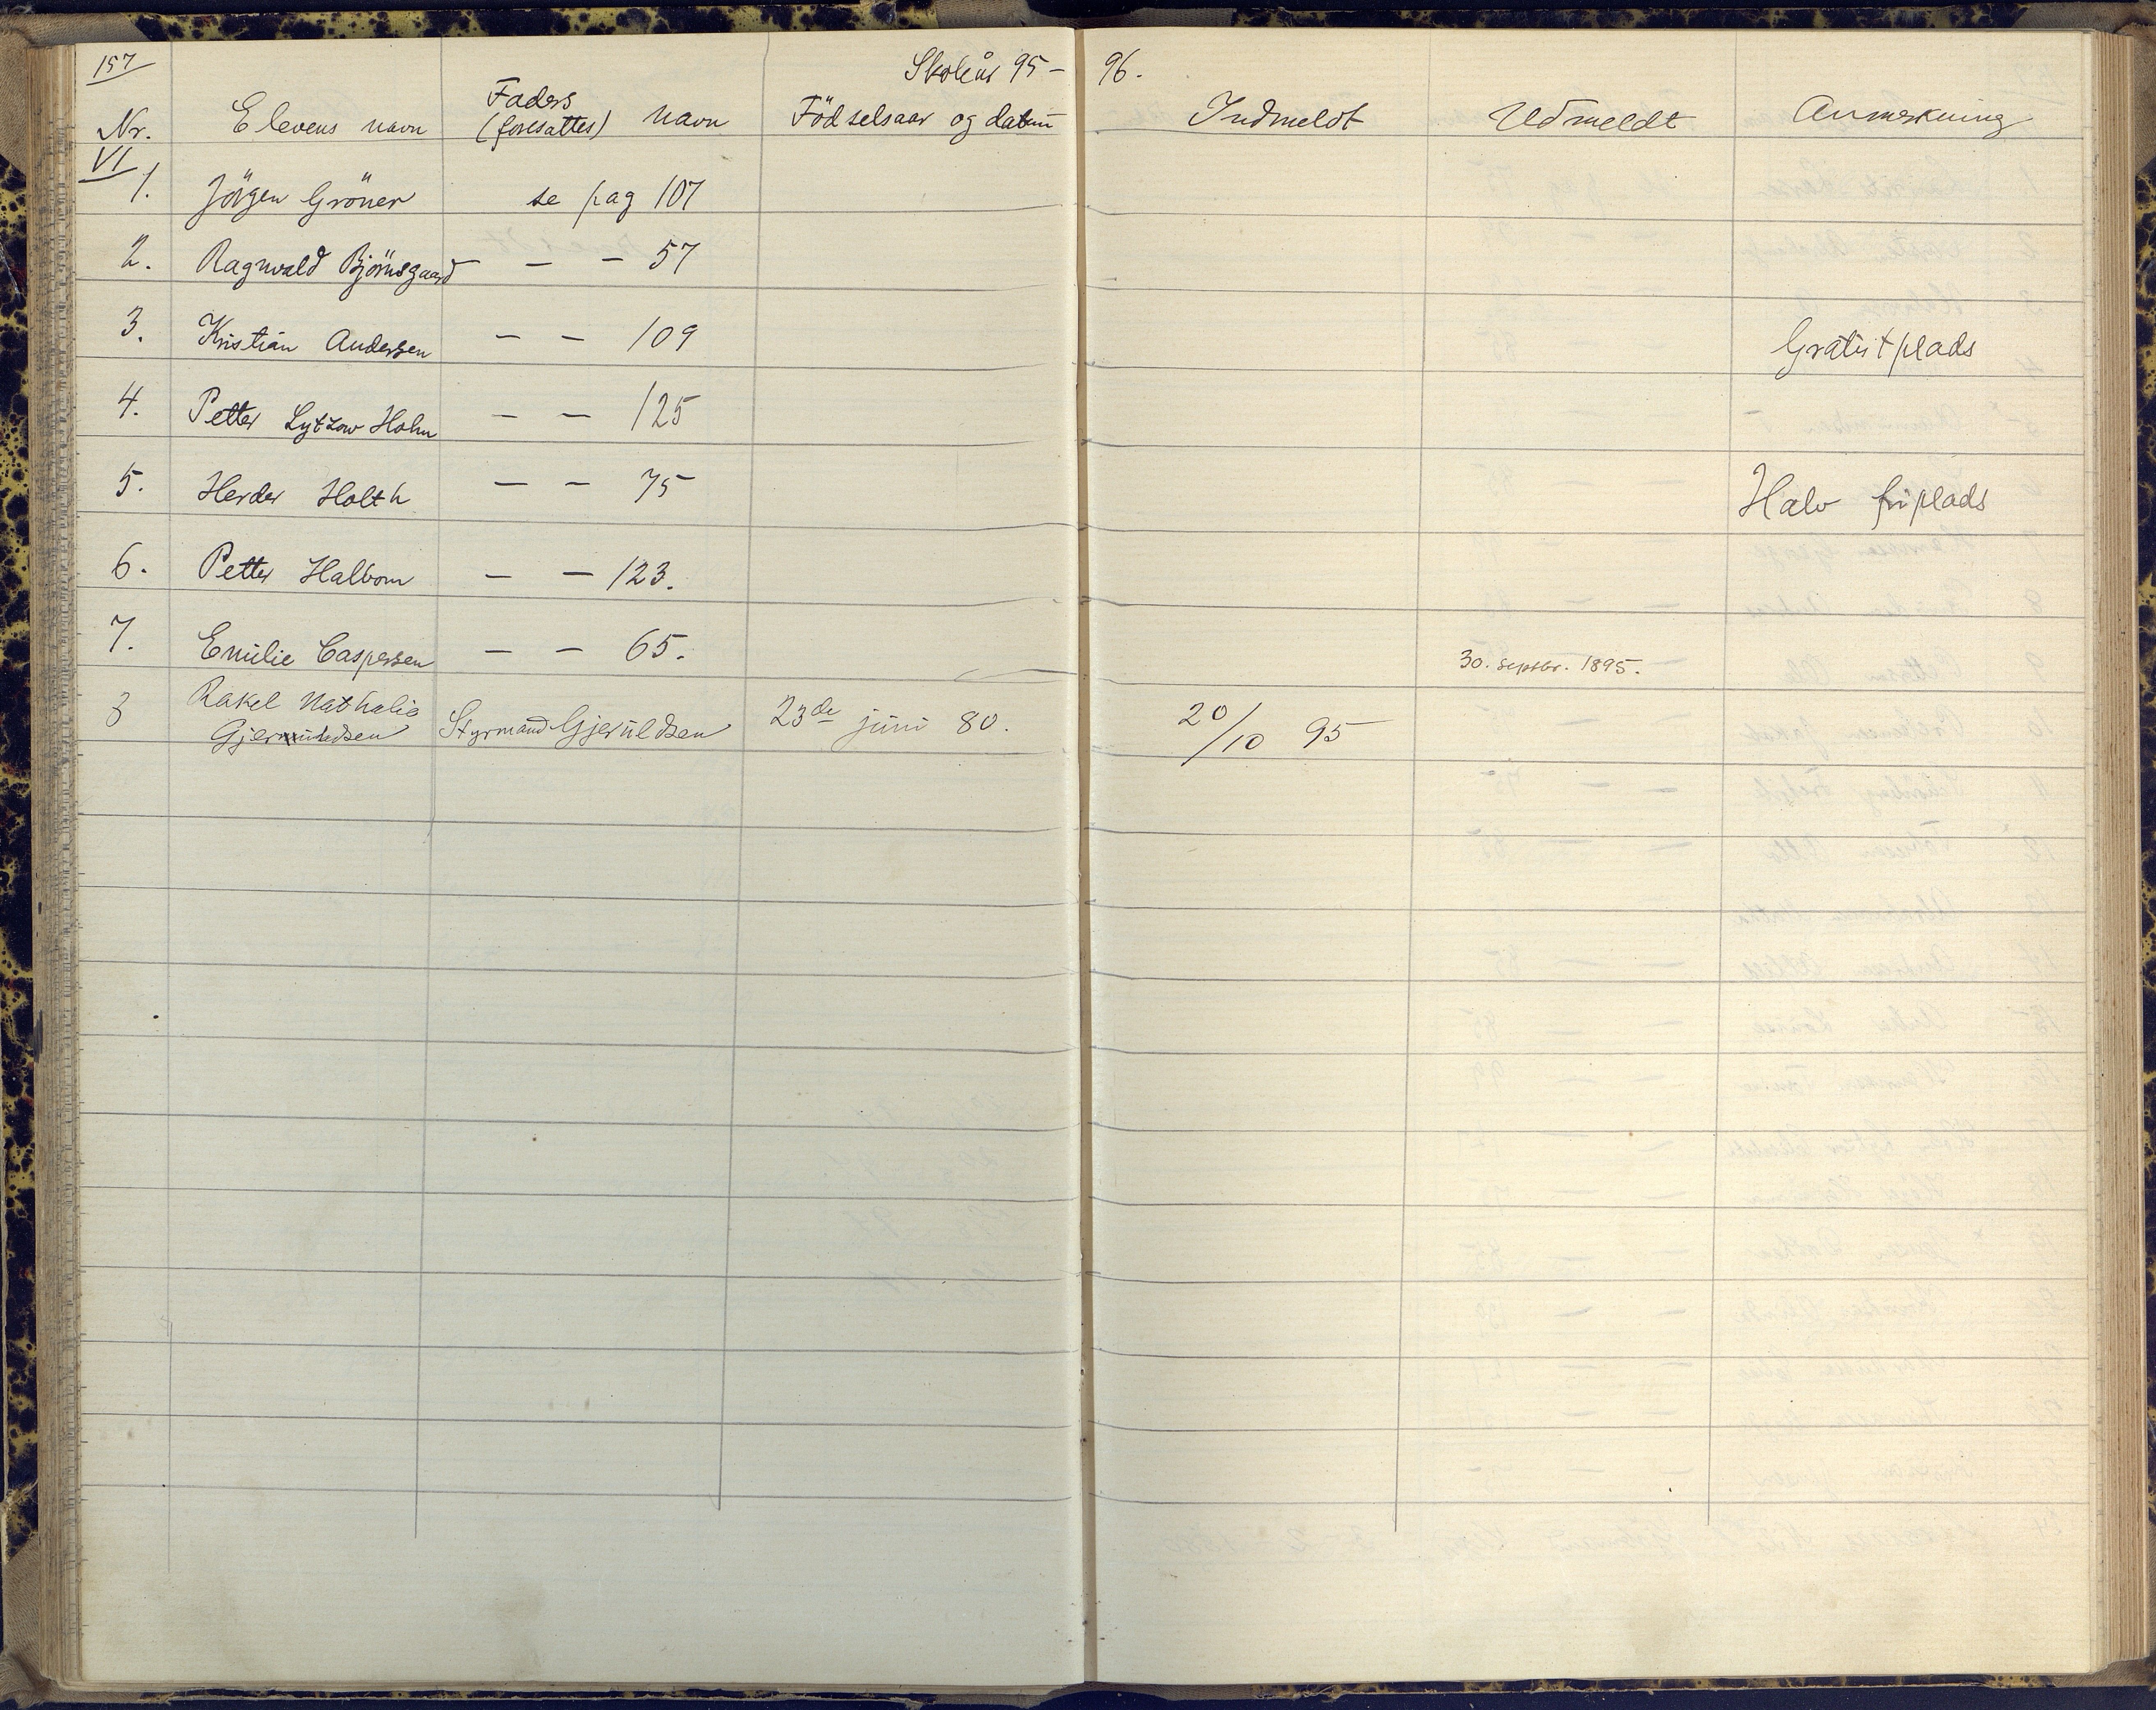 157
Skoleår 95 – 96.
Nr. Elevens navn Faders (foresattes) navn Födselsaar og datum Indmeldt Udmeldt Anmerkning
VI
1. Jörgen Gröner se pag 107
2. Ragnvald Bjørnsgaard – – 57
3. Kristian Andersen – – 109 Gratistplads
4. Petter Lytzow Holm – – 125
5. Herder Holth – – 75 Halv friplads
6. Petter Halborn – – 123.
7. Emilie Caspersen – – 65. 30. septbr. 1895.
8 Rakel Nathalie
Gjeruldsen Styrmand Gjeruldsen 23de juni 80. 20/10 95